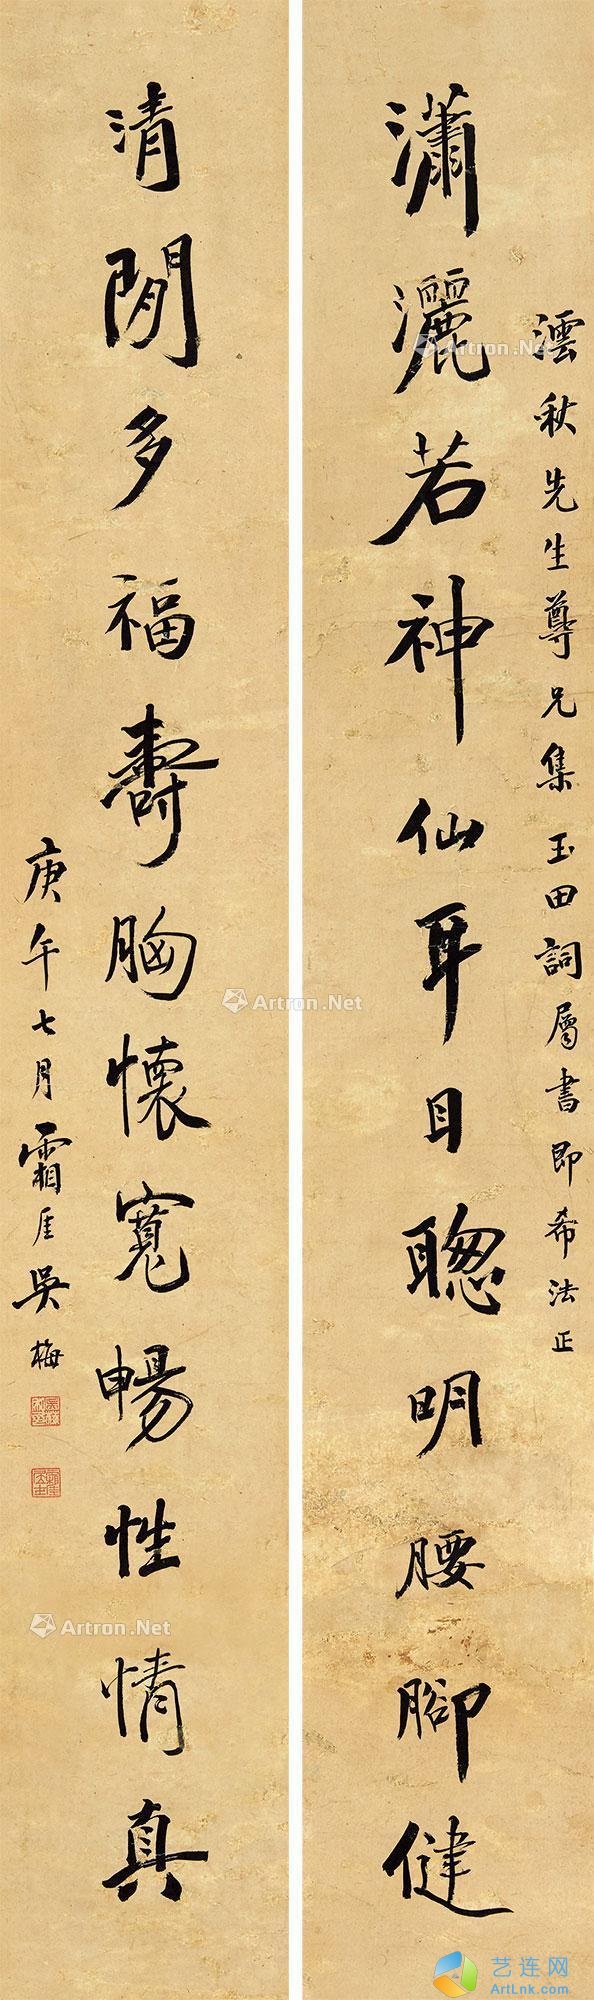 澐秋先生尊兄集玉田詞屬書即希法正
瀟灑若神仙耳目聰明腰腳健
清閒多福壽胸懷寬暢性情真
庚午七月霜厓吳梅
Artron.Net
Artron.Net
Artron.Net
艺连网
ArtLnk.com